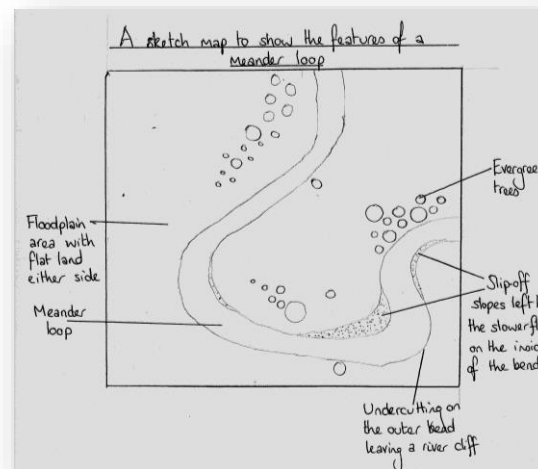 A sketch map to show the features of a
Meander loop
Evergree
trees
Floodplain
area with
flat land
either side
Meander
loop
Slip-off
slopes left
the slower
on the insid
of the bend
Undercutting on
the outer bend
leaving a river cliff